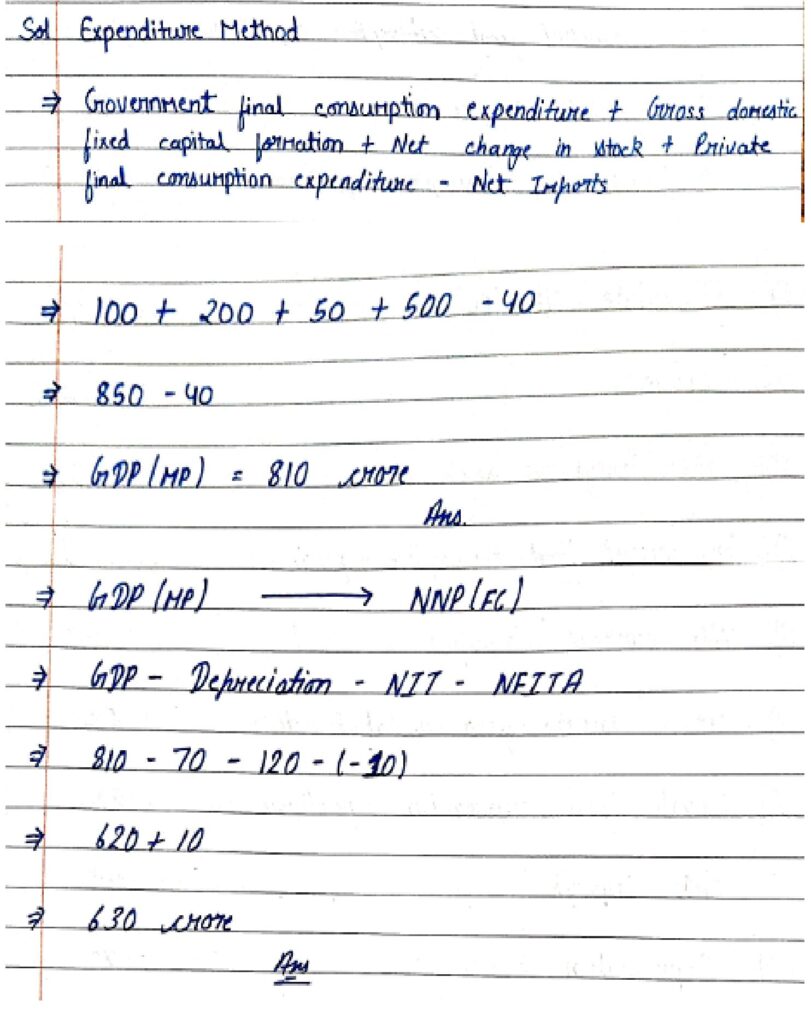 Sol Expenditure Method
⇒ Government final consumption expenditure + Gross domestic
fixed capital formation + Net change in stock + Private
final consumption expenditure - Net Imports
⇒ 100 + 200 + 50 + 500 - 40
⇒ 850 - 40
⇒ GDP(MP) = 810 crore
Ans.
⇒ GDP(MP) ⟶ NNP(FC)
⇒ GDP - Depreciation - NIT - NFITA
⇒ 810 - 70 - 120 - (-10)
⇒ 620 + 10
⇒ 630 crore
Ans